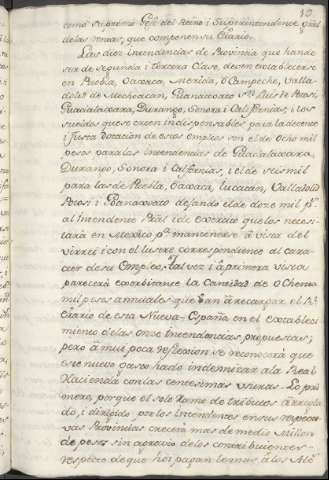 10.
como Suprémo Gefe del Reino i Superintendente gral
delas rentas, que componen su Erario.
Las diez intendencias de Provincia que hande
ser de segunda i tercera Clase, deven establecerse
en Puebla, Oaxaca, Merida, ò Campeche, Valla-
dolid de Mechoacan, Guanaxuato Sn Luis de Potosi,
Guadalaxara, Durango, Sonora i Californias; i los
sueldos que se creen indispensables para la decente
i justa dotacion de estos empleos son el de Ocho mil
pesos para las intendencias de Guadalaxara,
Durango, Sonora i Californias, i el de seis mil
para las de Puebla, Oaxaca, Yucatan, Valladolid
Potosi i Guanaxuato dejando el de doze mil ps
al intendente Gral i de exercito que los necesi-
tará en Mexico pa mantenerse à vista del
virrei i con el lustre correspondiente al cara-
cter de su Empleo. Tal vez i à primera vista
parecerá exorbitante la Cantidad de Ochenta
mil pesos annuales que han de recargar el Rl
Erario de esta Nueva-España en el estableci-
miento delas onze Intendencias propuestas;
pero à mui poca reflexion se reconocerá que
este nuevo gasto hade indemnizar ala Real
Hacienda con las centesimas usuras. Lo pri-
mero, porque el solo Ramo de tributos arregla-
do, i dirigido por los Intendentes en sus respecti-
vas Provincias crecerá mas de medio Millon
de pesos sin agravio delos contribuientes
respecto de que hoi pagan tercios à los Alcs